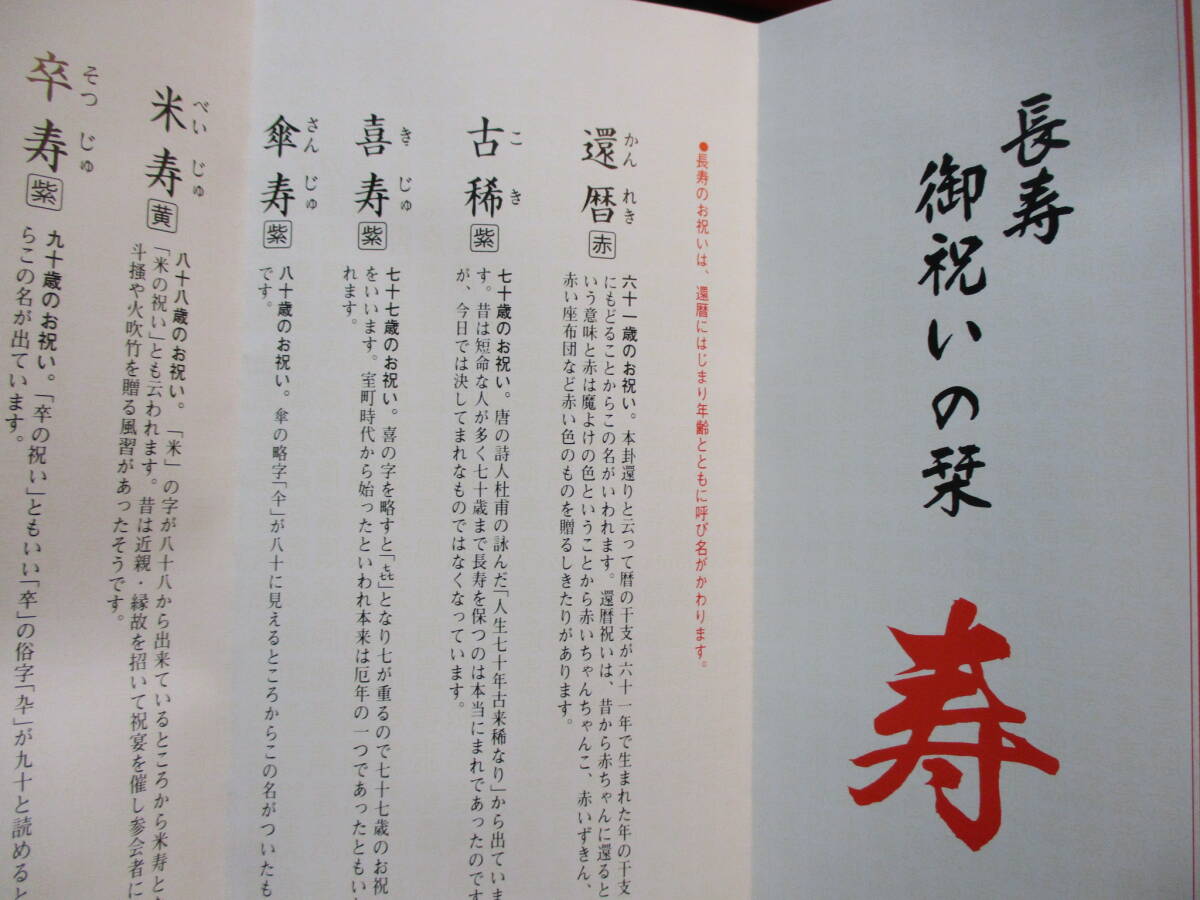 長寿
御祝いの栞
寿
●長寿のお祝いは、還暦にはじまり年齢とともに呼び名がかわります。
かんれき
還暦
赤
六十一歳のお祝い。本卦還りと云って暦の干支が六十一年で生まれた年の干支
にもどることからこの名がいわれます。還暦祝いは、昔から赤ちゃんに還ると
いう意味と赤は魔よけの色ということから赤いちゃんちゃんこ、赤いずきん、
赤い座布団など赤い色のものを贈るしきたりがあります。
こき
古稀
紫
七十歳のお祝い。唐の詩人杜甫の詠んだ「人生七十年古来稀なり」から出ていま
す。昔は短命な人が多く七十歳まで長寿を保つのは本当にまれであったのです
が、今日では決してまれなものではなくなっています。
きじゅ
喜寿
紫
七十七歳のお祝い。喜の字を略すと「㐂」となり七が重るので七十七歳のお祝
をいいます。室町時代から始ったといわれ本来は厄年の一つであったともい
れます。
さんじゅ
傘寿
紫
八十歳のお祝い。傘の略字「仐」が八十に見えるところからこの名がついたも
です。
べいじゅ
米寿
黄
八十八歳のお祝い。「米」の字が八十八から出来ているところから米寿と
「米の祝い」とも云われます。昔は近親・縁故を招いて祝宴を催し参会者に
斗掻や火吹竹を贈る風習があったそうです。
そつじゅ
卒寿
紫
九十歳のお祝い。「卒の祝い」ともいい「卒」の俗字「卆」が九十と読めると
らこの名が出ています。